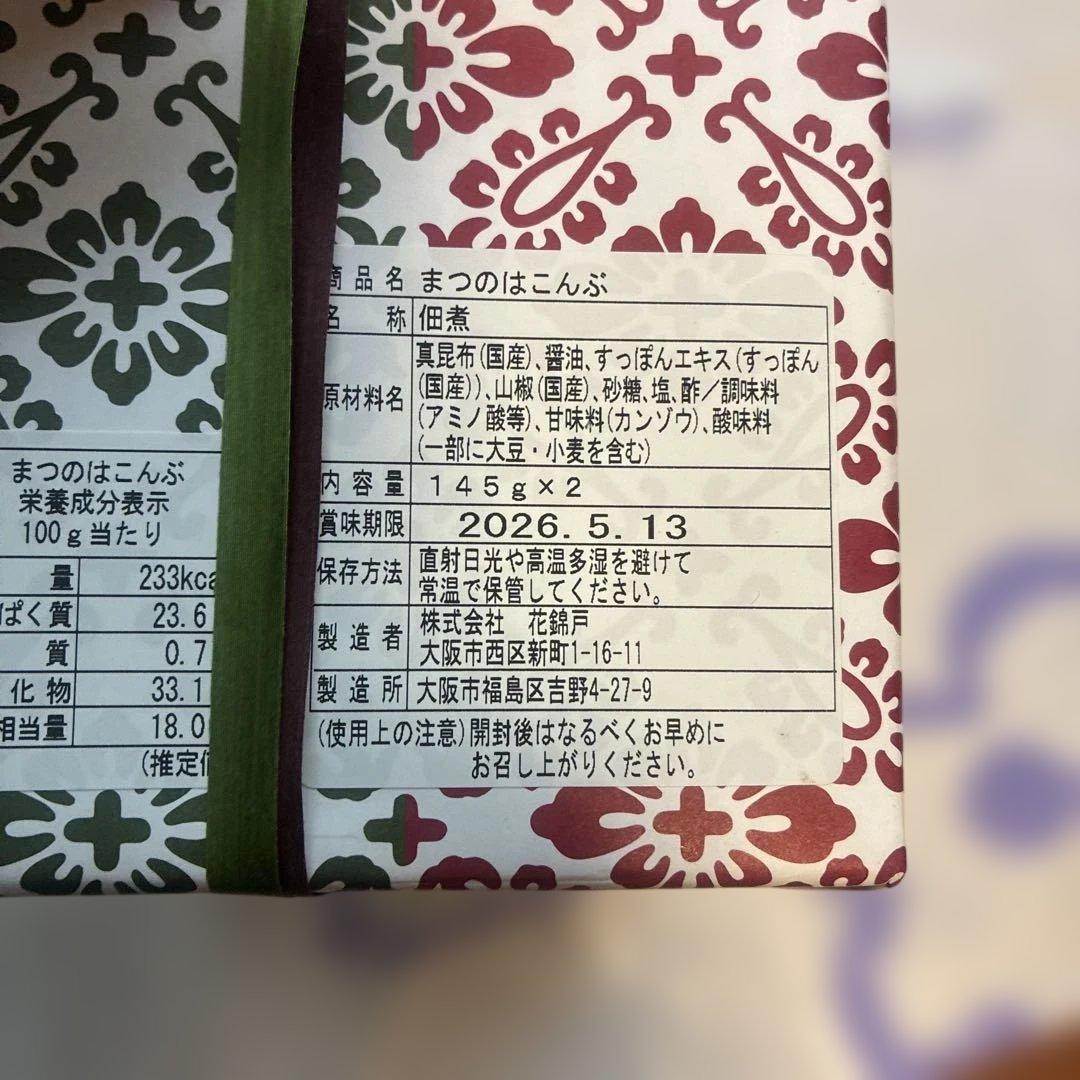 商品名 まつのはこんぶ
名 称 佃煮
原材料名 真昆布(国産)、醤油、すっぽんエキス(すっぽん
(国産))、山椒(国産)、砂糖、塩、酢/調味料
(アミノ酸等)、甘味料(カンゾウ)、酸味料
(一部に大豆・小麦を含む)
内容量 145g×2
賞味期限 2026.5.13
保存方法 直射日光や高温多湿を避けて
常温で保管してください。
製造者 株式会社 花錦戸
大阪市西区新町1-16-11
製造所 大阪市福島区吉野4-27-9
(使用上の注意)開封後はなるべくお早めに
お召し上がりください。
まつのはこんぶ
栄養成分表示
100g当たり
量 233kca
ぱく質 23.6
質 0.7
化物 33.1
相当量 18.0
(推定値